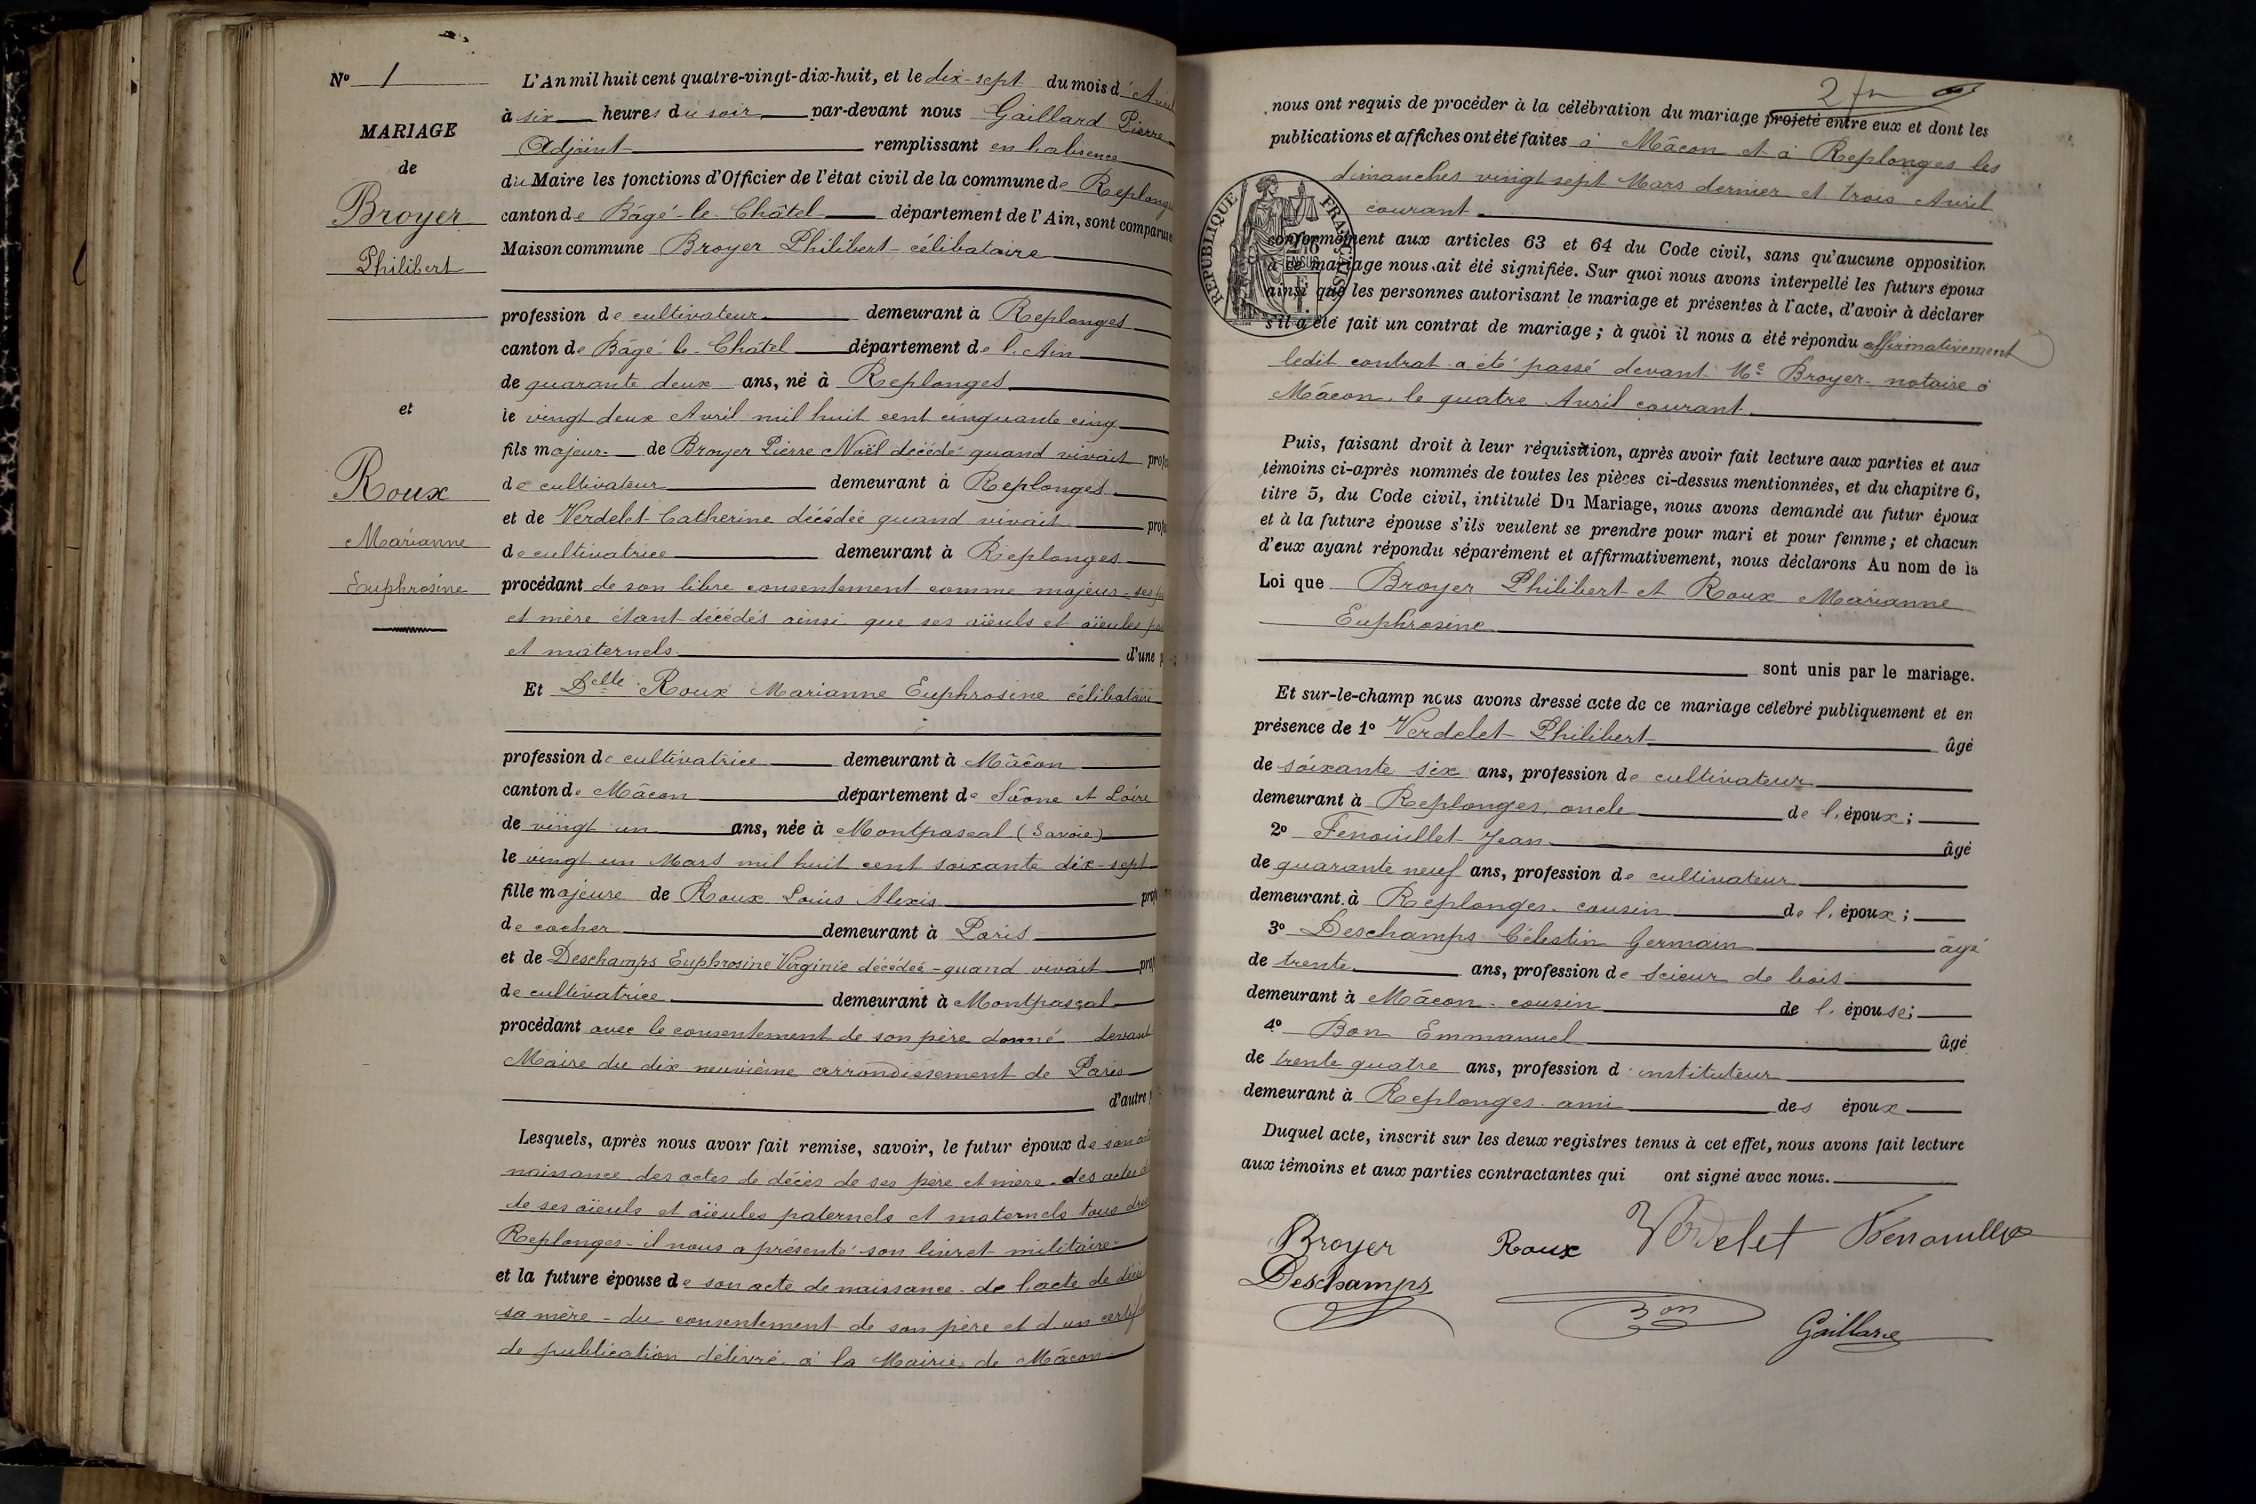 Nº 1
MARIAGE
de
Broyer
Philibert
et
Roux
Marianne
Euphrosine
L'An mil huit cent quatre-vingt-dix-huit, et le dix-sept du mois d'Avril
à six heures du soir par-devant nous Gaillard Pierre
Adjoint remplissant en l'absence
du Maire les fonctions d'Officier de l'état civil de la commune de Replonges
canton de Bâgé-le-Châtel département de l'Ain, sont comparus
Maison commune Broyer Philibert célibataire
profession de cultivateur demeurant à Replonges
canton de Bâgé-le-Châtel département de l'Ain
de quarante deux ans, né à Replonges
le vingt deux Avril mil huit cent cinquante cinq
fils majeur de Broyer Pierre Noël décédé quand vivait
de cultivateur demeurant à Replonges
et de Verdelet Catherine décédée quand vivait
de cultivatrice demeurant à Replonges
procédant de son libre consentement comme majeur ses
et mère étant décédés ainsi que ses aïeuls et aïeules
et maternels d'une
Et Delle Roux Marianne Euphrosine célibataire
profession de cultivatrice demeurant à Mâcon
canton de Mâcon département de Saône et Loire
de vingt un ans, née à Montpascal (Savoie)
le vingt un Mars mil huit cent soixante dix-sept
fille majeure de Roux Louis Alexis
de cocher demeurant à Paris
et de Deschamps Euphrosine Virginie décédée quand vivait
de cultivatrice demeurant à Montpascal
procédant avec le consentement de son père donné devant
Maire du dix neuvième arrondissement de Paris
d'autre
Lesquels, après nous avoir fait remise, savoir, le futur époux de son
naissance des actes de décès de ses père et mère des actes
de ses aïeuls et aïeules paternels et maternels tous
Replonges il nous a présenté son livret militaire
et la future épouse de son acte de naissance de l'acte de décès
sa mère du consentement de son père et d'un
de publication délivré à la Mairie de Mâcon
2
nous ont requis de procéder à la célébration du mariage projeté entre eux et dont les
publications et affiches ont été faites à Mâcon et à Replonges les
dimanches vingt sept Mars dernier et trois Avril
courant
RÉPUBLIQUE FRANÇAISE
conformément aux articles 63 et 64 du Code civil, sans qu'aucune opposition
à ce mariage nous ait été signifiée. Sur quoi nous avons interpellé les futurs époux
ainsi que les personnes autorisant le mariage et présentes à l'acte, d'avoir à déclarer
s'il a été fait un contrat de mariage ; à quoi il nous a été répondu affirmativement
ledit contrat a été passé devant Me Broyer notaire à
Mâcon le quatre Avril courant
Puis, faisant droit à leur réquisition, après avoir fait lecture aux parties et aux
témoins ci-après nommés de toutes les pièces ci-dessus mentionnées, et du chapitre 6,
titre 5, du Code civil, intitulé Du Mariage, nous avons demandé au futur époux
et à la future épouse s'ils veulent se prendre pour mari et pour femme ; et chacun
d'eux ayant répondu séparément et affirmativement, nous déclarons Au nom de la
Loi que Broyer Philibert et Roux Marianne
Euphrosine
sont unis par le mariage.
Et sur-le-champ nous avons dressé acte de ce mariage célébré publiquement et en
présence de 1º Verdelet Philibert âgé
de soixante six ans, profession de cultivateur
demeurant à Replonges, oncle de l'époux ;
2º Fenouillet Jean âgé
de quarante neuf ans, profession de cultivateur
demeurant à Replonges cousin de l'époux ;
3º Deschamps Célestin Germain âgé
de trente ans, profession de scieur de bois
demeurant à Mâcon cousin de l'épouse ;
4º Bon Emmanuel âgé
de trente quatre ans, profession d'instituteur
demeurant à Replonges ami des époux
Duquel acte, inscrit sur les deux registres tenus à cet effet, nous avons fait lecture
aux témoins et aux parties contractantes qui ont signé avec nous.
Broyer Roux Verdelet Fenouillet
Deschamps Bon Gaillard